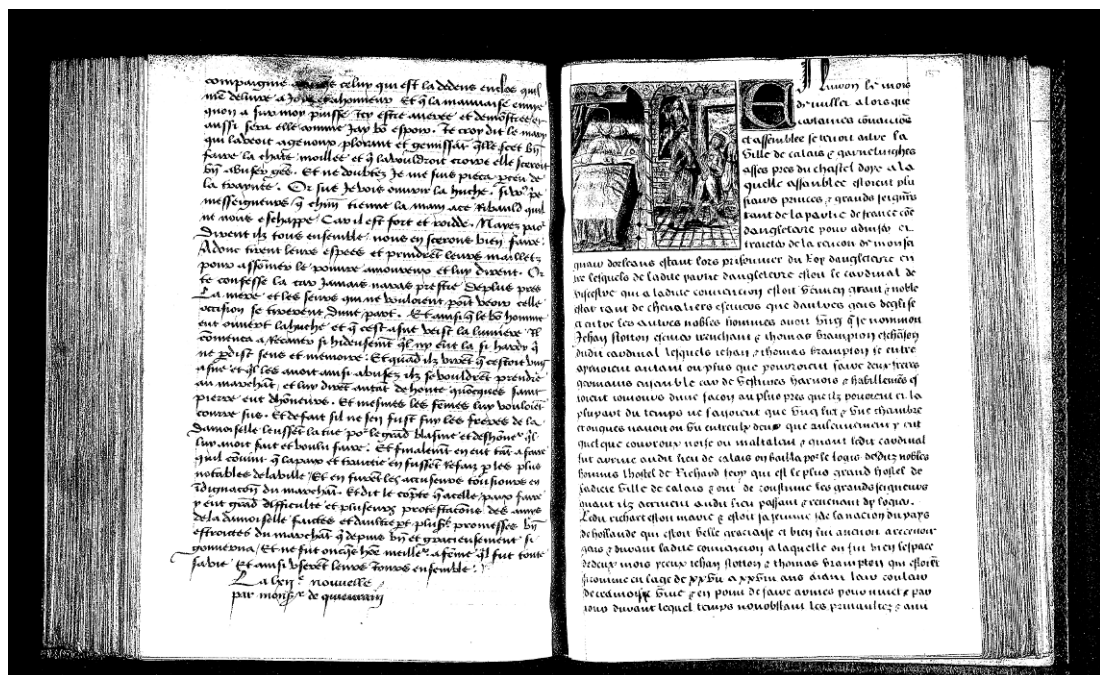 compaignie celuy qui est la dedens encloz quil
me delivre a Joye et a honneur Et q la mauvaise envye
quon a sur moy puisse icy estre averee et demonstree et
aussi sera elle comme Jay bo espoir. Je croy dit le mary
qui la veoit a genoux plorant et gemissant qlle scet bn
faire la chate moillee et q la vouldroit croire elle sceroit
bn abuser gens. Et ne doubtez Je me suis pieca perceu de
la traynee. Or sus Je vois ouvrir la huche. Si vo9 pe
messeigneurs q chun tienne la main a ce Ribauld quil
ne nous eschappe Car il est fort et roidde. Nayez pao
Dirent ilz tous ensemble nous en scerons bien faire.
Adonc tirent leurs espees et prindrent leurs mailletz
pour assommer le povre amoureux et luy dirent. Or
te confesse la car Jamais nauras prestre De plus pres
La mere et les seurs qui ne vouloient point veoir celle
occision se tirerent dune part. Et ainsi q le bo homme
eut ouvert la huche et q cest asne veist la lumiere Il
comenca a Recaner si hideusemt ql ny eut la si hardy q
ne pdist sens et memoire. Et quad ilz virent q cestoit ung
asne et ql les avoit ainsi abusez ilz se vouldret prendre
au marchat, et luy diret autat de honte qoncques saint
pierre eut dhoneurs. Et mesmes les femes luy vouloiet
courre sus. Et de fait sil ne sen fust fuy les freres de la
damoiselle leussent la tue por le grad blasme et deshone9 ql
luy avoit fait et voulu faire. Et finalemt en eut tat a faire
quil couvint q la paix et traictie en fussent refaiz p les plus
notables de la ville. Et en furet les accuseurs tousiours en
idignacon du marchat. Et dit le copte q a celle paix faire
y eut grad difficulte et plusieurs protestacions des amys
de la damoiselle faictes et daultre pt plusrs promesses bn
estroictes du marchat q depuis bn et gracieusement si
gouverna. Et ne fut oncqs hoe meiller a feme ql fut toute
sa vie Et ainsi userent leurs Jours ensemble.
La lxije nouvelle
par monsr de quievrain
Environ le mois
de Juillet a lors que
certaines convencion
et assemblee se tenoit entre la
Ville de calais & gravelinghes
asses pres du chastel doye a la
quelle assemblee estoient plu
sieurs princes & grands seigneurs
tant de la partie de france coe
dangleterre pour adviser et
traictier de la rancon de monse
gneur dorleans estant lors prisonnier du Roy dangleterre en
tre lesquelz de ladite partie dangleterre estoit le cardinal de
viscestre qui a ladite convencion estoit venu en grant & noble
estat tant de chevaliers escuiers que dautres gens deglise
et entre les autres nobles hommes avoit ung q se nommoit
Jehan stotton escuier trenchant & thomas brampton eschanson
dudit cardinal lesquels Jehan & thomas brampton se entre
amoient autant ou plus que pourroient faire deux freres
germains ensemble car de vestures harnois & habillemens es
toient tousiours dune facon au plus pres que ilz povoient et la
plupart du temps ne faisoient que ung lict & une chambre
et oncques navoit on veu entreulx deux que aulcunement y eut
quelque courroux noise ou maltalent & quant ledit cardinal
fut arrive audit lieu de calais on bailla por le logis desdiz nobles
hommes lhostel de Richard fery qui est le plus grand hostel de
ladite Ville de calais & ont de coustume les grands seigneurs
quant ilz arrivent audit lieu passant & revenant dy loger.
Ledit richart estoit marie & estoit sa femme de la nacion du pays
de hollande qui estoit belle gracieuse et bien luy advenoit a recevoir
gens & durant ladite convencion a laquelle on fut bien lespace
de deux mois yceux Jehan stotton & thomas brampton qui estoient
si comme en leage de xxvij a xxviij ans aians leur couleur
de cramoisy vive & en point de faire armes pour nuict & par
jour durant lequel temps nonobstant les privaultez & ami